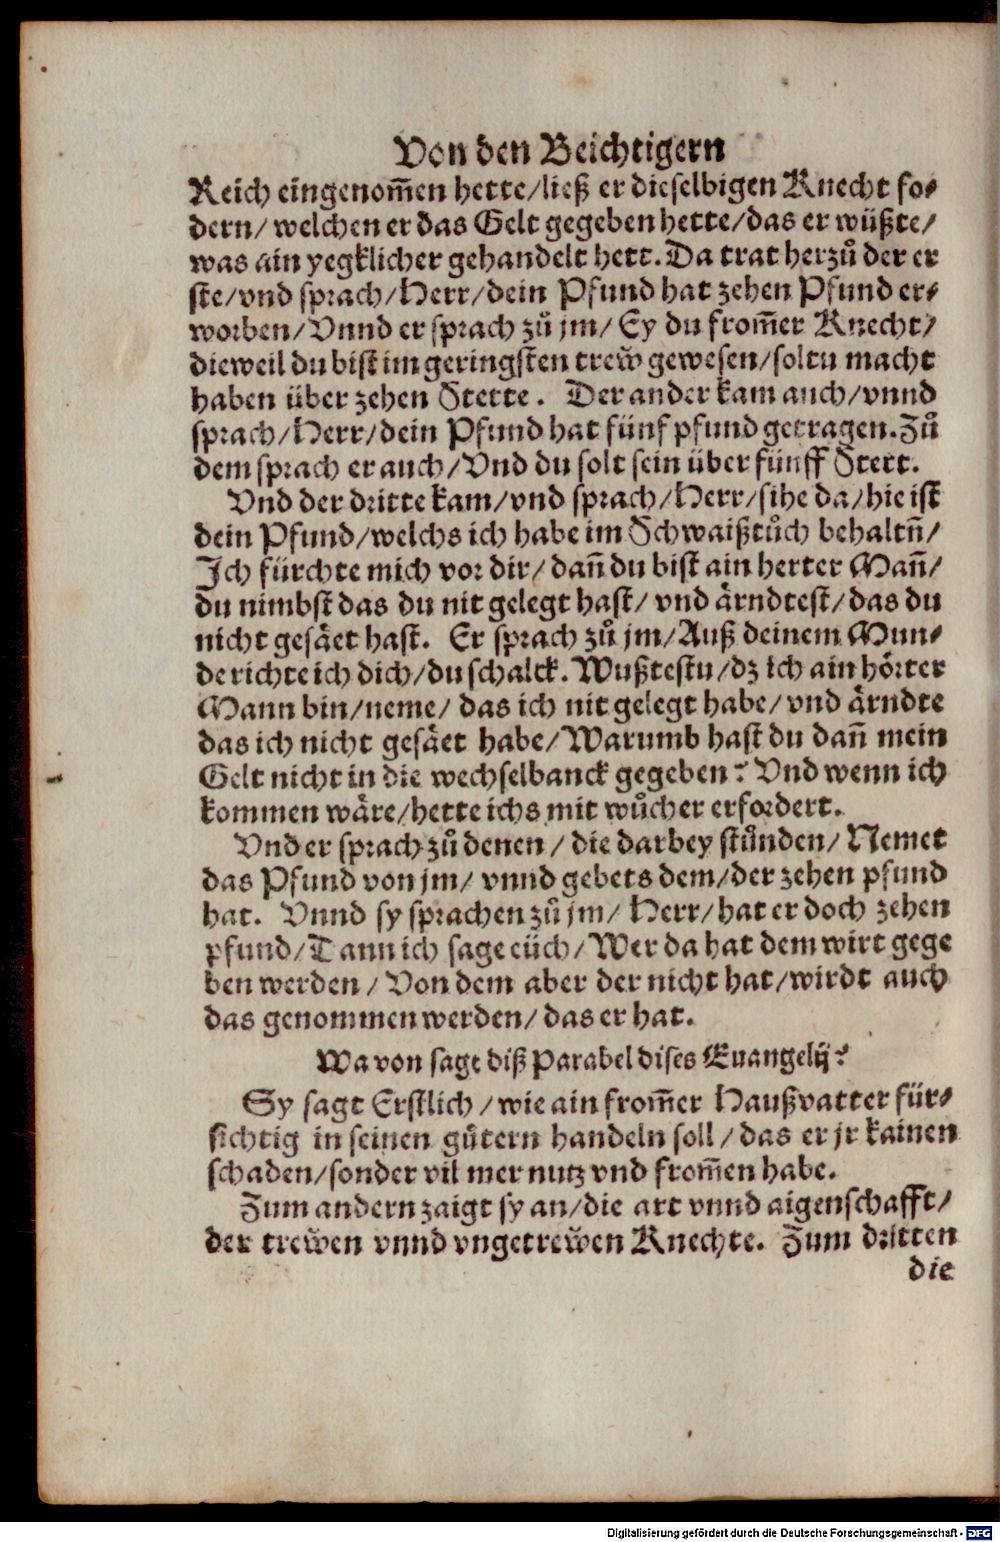 Von den Beichtigern
Reich eingenom̃en hette/ließ er dieselbigen Knecht fo⸗
dern/ welchen er das Gelt gegeben hette/das er wüßte/
was ain yegklicher gehandelt hett. Da trat herzů der er
ste/vnd sprach/Herr/dein Pfund hat zehen Pfund er⸗
worben/Vnnd er sprach zů jm/ Ey du from̃er Knecht/
dieweil du bist im geringsten trew̆ gewesen/soltu macht
haben über zehen Stette. Der ander kam auch/vnnd
sprach/Herr/dein Pfund hat fünf pfund getragen.Zů
dem sprach er auch/Vnd du solt sein über fünff Stett.
Vnd der dritte kam/vnd sprach/Herr/sihe da/hie ist
dein Pfund/welchs ich habe im Schwaißtůch behaltñ/
Ich fürchte mich vor dir/dañ du bist ain herter Mañ/
du nimbst das du nit gelegt hast/ vnd ärndtest/das du
nicht gesäet hast. Er sprach zů jm/Auß deinem Mun⸗
de richte ich dich/du schalck. Wußtestu/dz ich ain hörter
Mann bin/neme/ das ich nit gelegt habe/vnd ärndte
das ich nicht gesäet habe/Warumb hast du dañ mein
Gelt nicht in die wechselbanck gegeben? Vnd wenn ich
kommen wäre/hette ichs mit wůcher erfordert.
Vnd er sprach zů denen/ die darbey stůnden/ Nemet
das Pfund von jm/ vnnd gebets dem/der zehen pfund
hat. Vnnd sy sprachen zů jm/ Herr/hat er doch zehen
pfund/Dann ich sage eüch/Wer da hat dem wirt gege
ben werden/ Von dem aber der nicht hat/wirdt auch
das genommen werden/das er hat.
Wa von sagt diß Parabel dises Euangelij?
Sy sagt Erstlich/wie ain from̃er Haußvatter für⸗
sichtig in seinen gůtern handeln soll/das er jr kainen
schaden/sonder vil mer nutz vnd from̃en habe.
Zum andern zaigt sy an/die art vnnd aigenschafft/
der trew̆en vnnd vngetrew̆en Knechte. Zum dritten
die
Digitalisierung gefördert durch die Deutsche Forschungsgemeinschaft - DFG